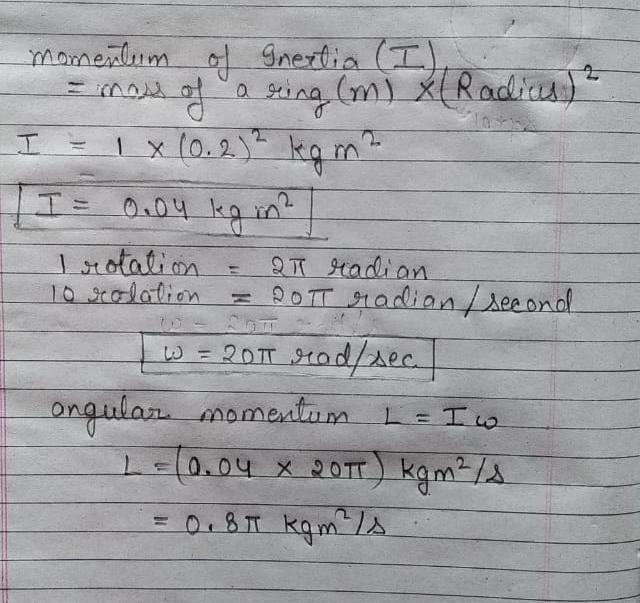 momentum of Inertia (I)
= mass of a ring (m) × (Radius)²
I = 1 × (0.2)² kg m²
I = 0.04 kg m²
1 rotation = 2π radian
10 rotation = 20π radian/second
ω = 20π rad/sec.
angular momentum L = Iω
L = (0.04 × 20π) kgm²/s
= 0.8π kgm²/s